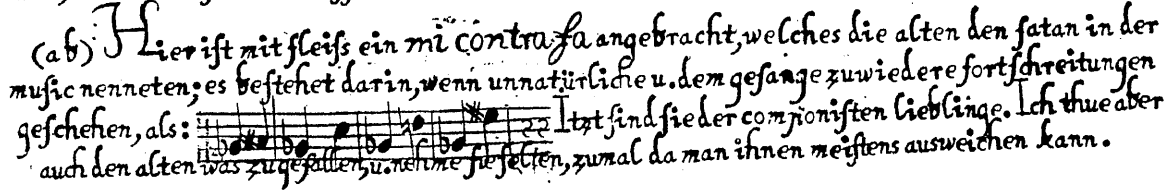 (ab) Hier ist mit fleiss ein mi contra fa angebracht, welches die alten den satan in der
music nenneten; es bestehet darin, wenn unnatürliche u. dem gesange zuwiedere fortschreitungen
geschehen, als: Itzt sind sie der componisten lieblinge. Ich thue aber
auch den alten was zu gefallen, u. nehme sie selten, zumal da man ihnen meistens ausweichen kann.